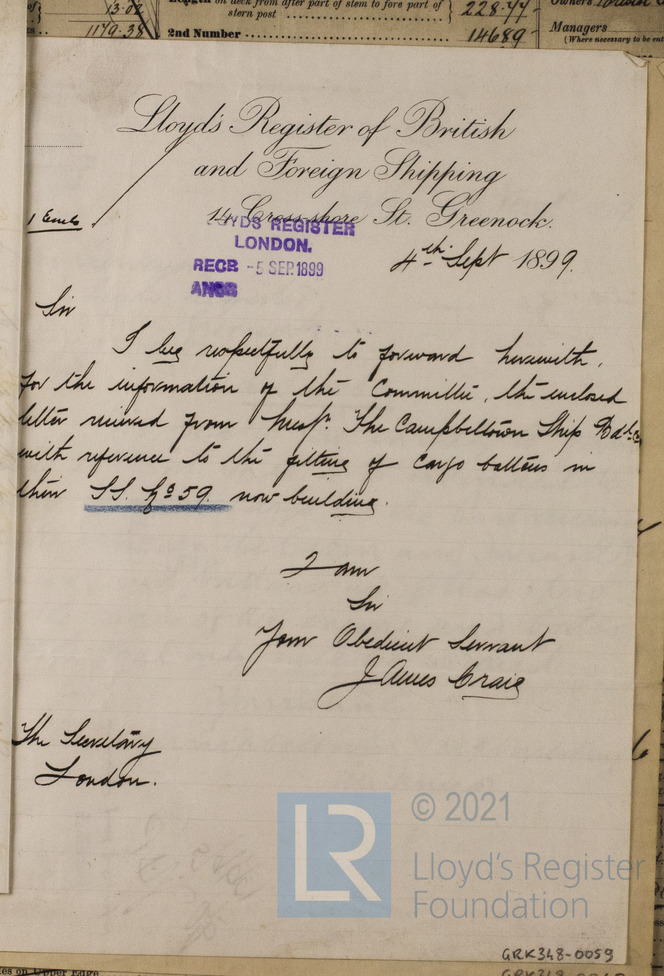 13.02
1179.38
Length on deck from after part of stem to fore part of
stern post
228.44
2nd Number
14689
Owners
Managers
(Where necessary to be ent
Lloyd's Register of British
and Foreign Shipping
14 Cross-shore St. Greenock.
1 Encls
LOYDS REGISTER
LONDON.
RECD - 5 SEP. 1899
ANSD
4th Sept 1899.
Sir
I beg respectfully to forward herewith,
for the information of the Committee, the enclosed
letter received from Messrs. The Campbeltown Ship Bdg Co
with reference to the fitting of cargo battens in
their S.S. No 59 now building.
I am
Sir
Your Obedient Servant
James Craig
The Secretary
London.
LR
© 2021
Lloyd's Register
Foundation
GRK348-0059
es on Upper Edge